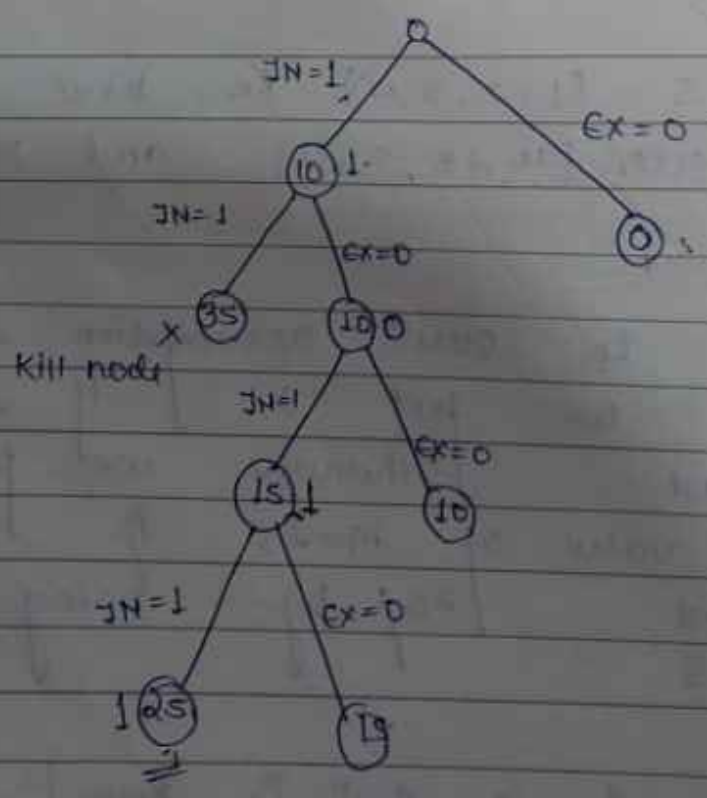 0
IN=1
EX=0
10 1.
IN=1
EX=0
0
35
10 0
X
Kill node
IN=1
EX=0
15 1
10
IN=1
EX=0
1 25
15